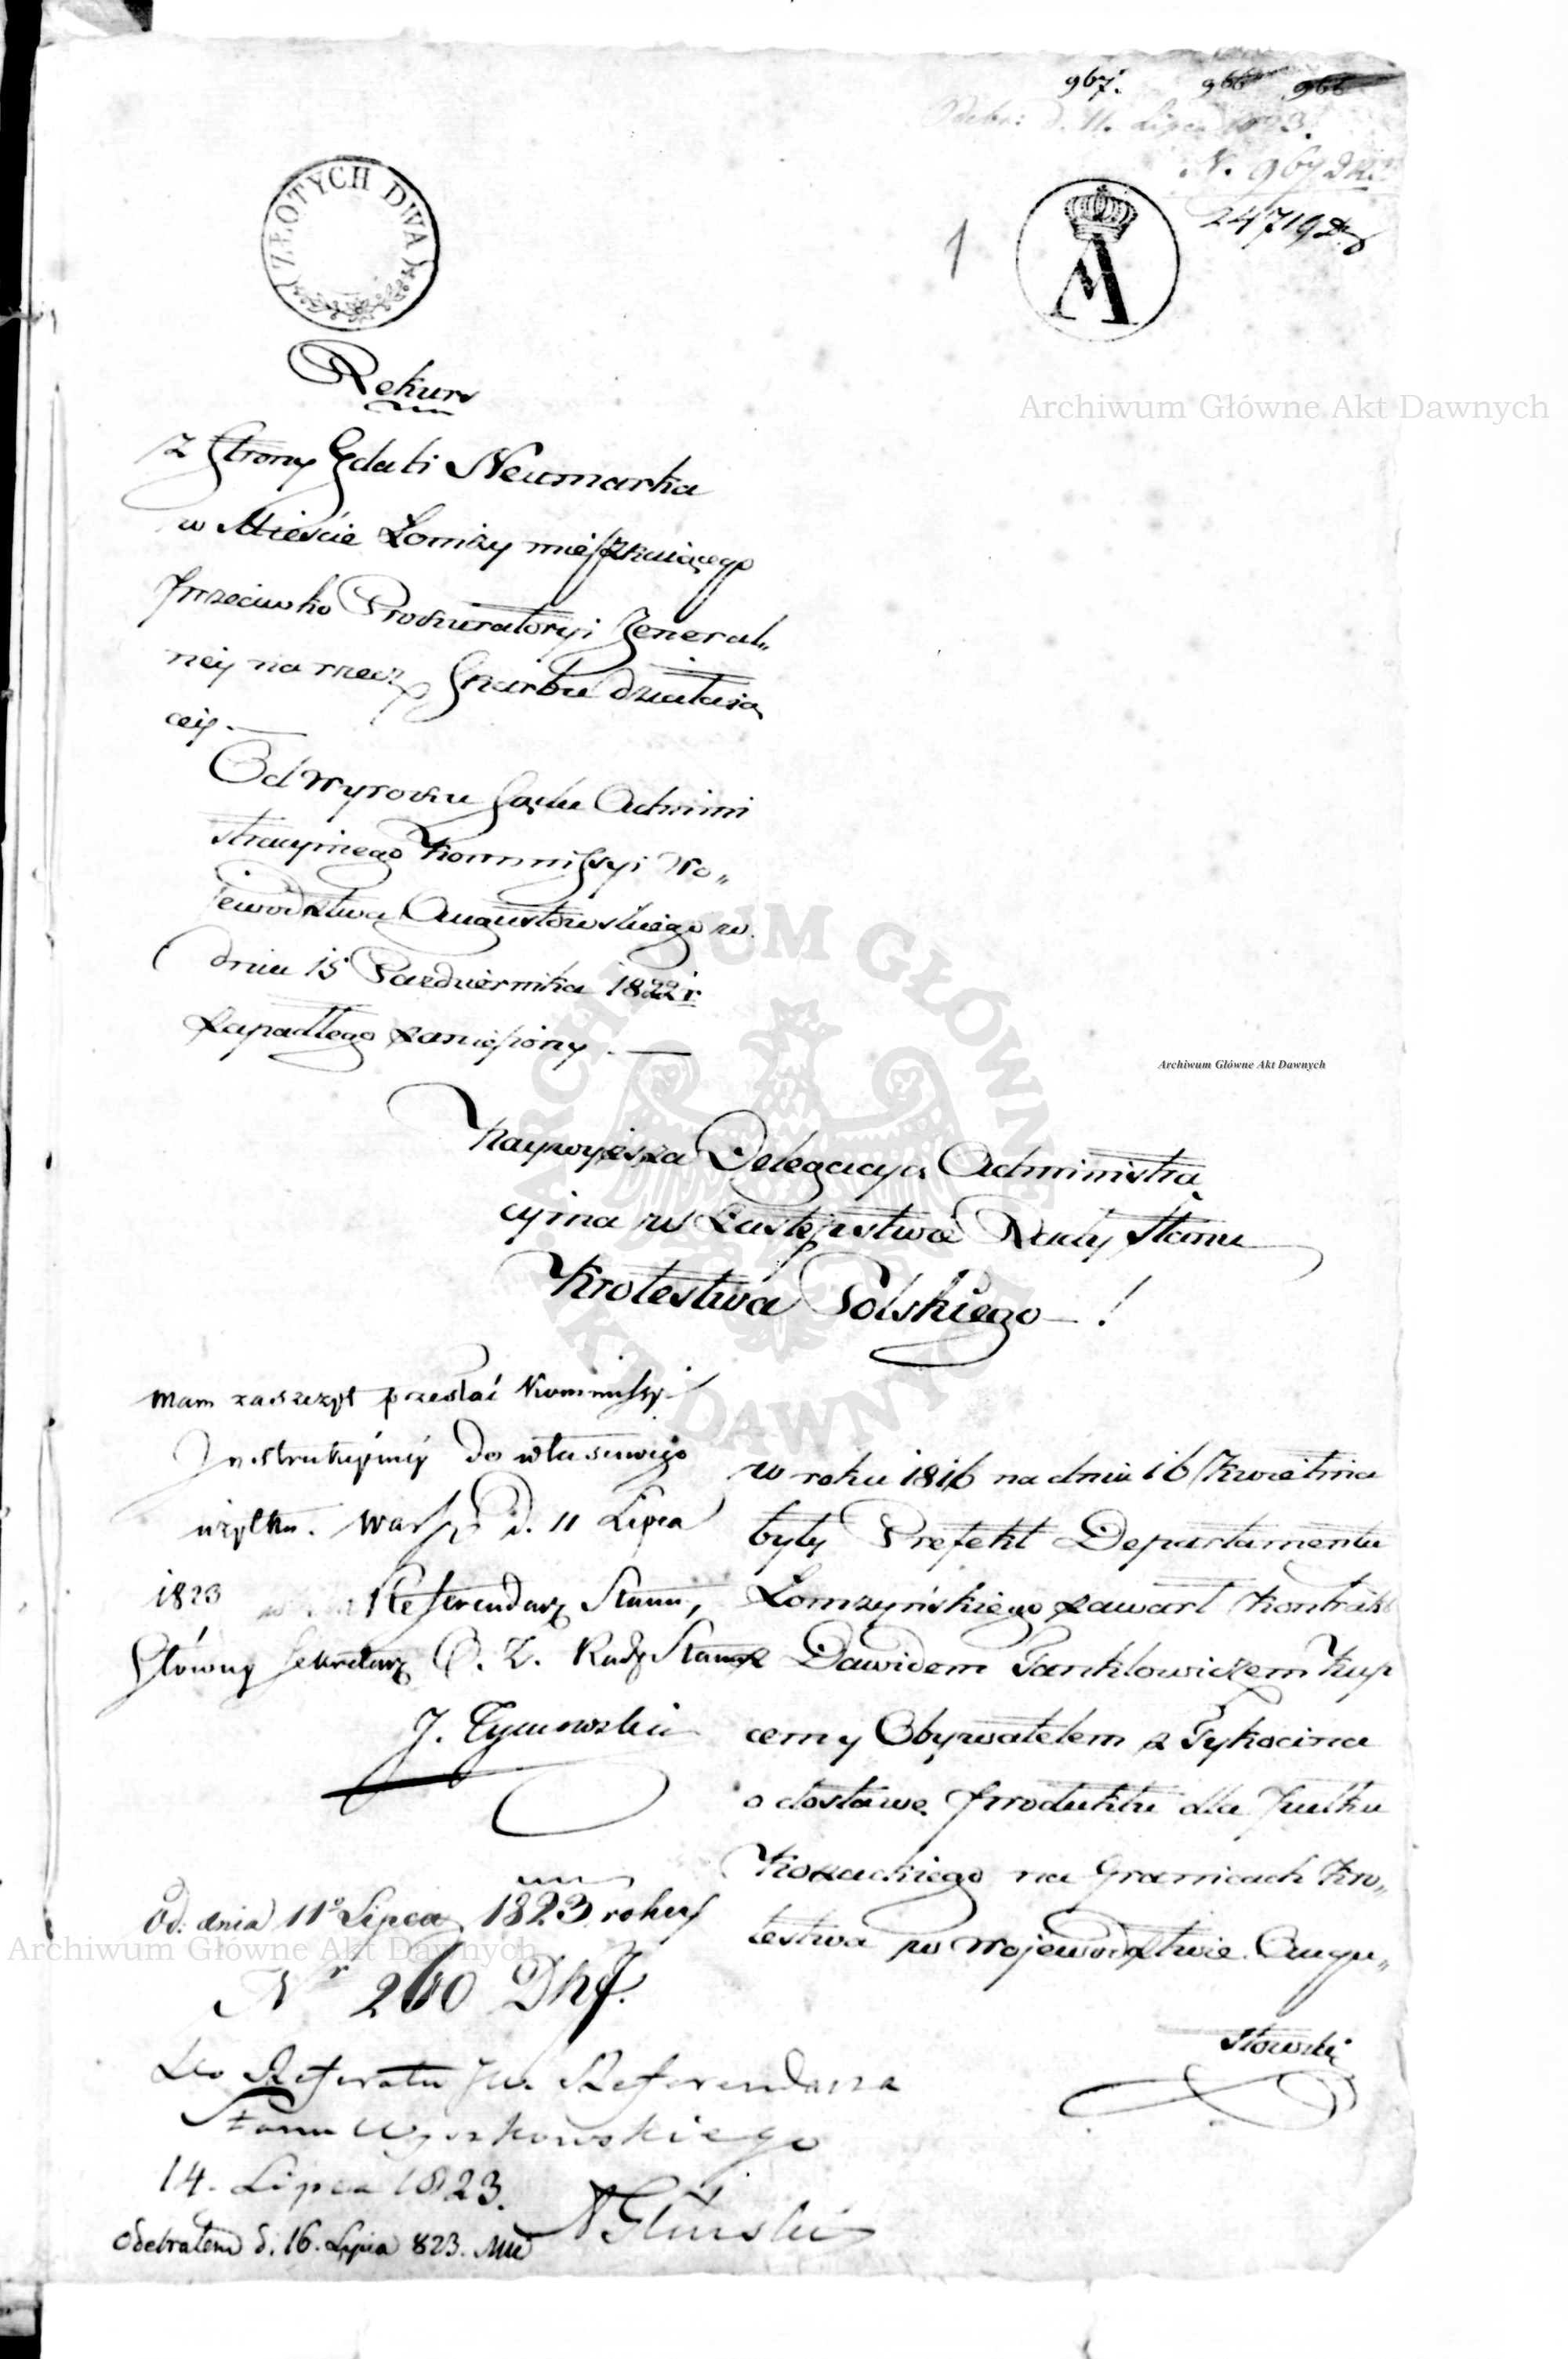 967. 966 966
Odebr: d. 11. Lipca 1823.
N. 967 D.K.
24719
1
ZŁOTYCH DWA
Rekurs
z Strony Gdali Neumarka
w Mieście Łomży mieszkaiącego
przeciwko Prokuratoryi Jeneral„
ney na rzecz Skarbu działaią
cey. —
Od Wyroku Sądu Admini
stracyinego Kommissyi Wo„
jewodztwa Augustowskiego w
dniu 15 Pazdziernika 1822 r.
zapadłego zaniesiony. —
Naywyższa Delegacya Administra
cyina w Zastępstwie Rady Stanu
Krolestwa Polskiego — !
Mam zaszczyt przesłać Kommissyi
Instrukcyiney do właściwego
użytku. Warsz. d. 11 Lipca
1823 Referendarz Stanu,
Główny Sekretarz D. Z. Rady Stanu
J. Tymowski
w roku 1816 na dniu 16 Kwietnia
były Prefekt Departamentu
Łomzyńskiego zawarł Kontrakt
z Dawidem Janklowiczem Kup
cem y Obywatelem z Tykocina
o dostawę produktu dla Pułku
Kozackiego na Granicach Kro„
lestwa w Wojewodztwie Augu„
stowski
Od. dnia 11º Lipca 1823 roku
Nr 260 DKJ.
Do Referatu JW. Referendarza
Stanu Wyczkowskiego
14. Lipca 1823.
NGliński
Odebrałem d. 16. Lipca 823.
Archiwum Główne Akt Dawnych
Archiwum Główne Akt Dawnych
Archiwum Główne Akt Dawnych
ARCHIWUM GŁÓWNE AKT DAWNYCH